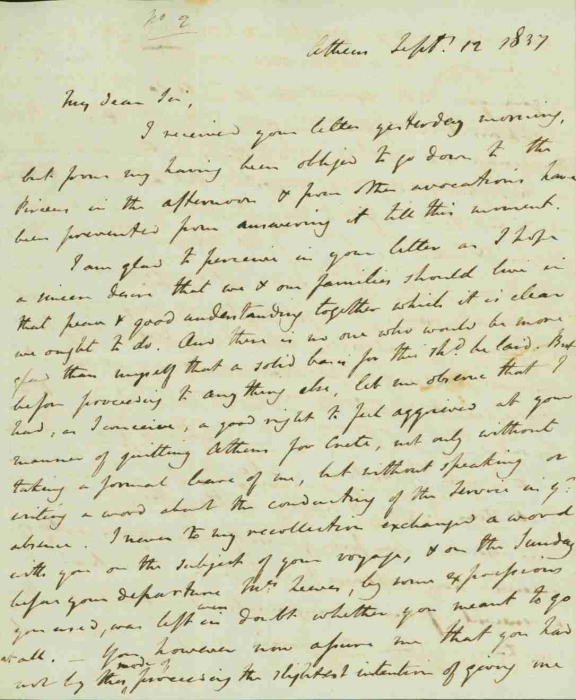 No 2
Athens Septr. 12 1837
My dear Sir,
I received your letter yesterday morning,
but from my having been obliged to go down to the
Piraeus in the afternoon & from other avocations have
been prevented from answering it till this moment.
I am glad to perceive in your letter as I hope
a sincere desire that we & our families should live in
that peace & good understanding together which it is clear
we ought to do. And there is no one who would be more
glad than myself that a solid basis for this shd. be laid. But
before proceeding to any thing else, let me observe that I
had, as I conceive, a good right to feel aggrieved at your
manner of quitting Athens for Crete, not only without
taking a formal leave of me, but without speaking or
writing a word about the conducting of the Service in yr.
absence. I never to my recollection exchanged a word
with you on the subject of your voyage, & on the Sunday
before your departure Mrs. Leeves, by some expressions
you used, was left in even doubt whether you meant to go
at all. — You however now assure me that you had
not by this mode of proceeding the slightest intention of giving me